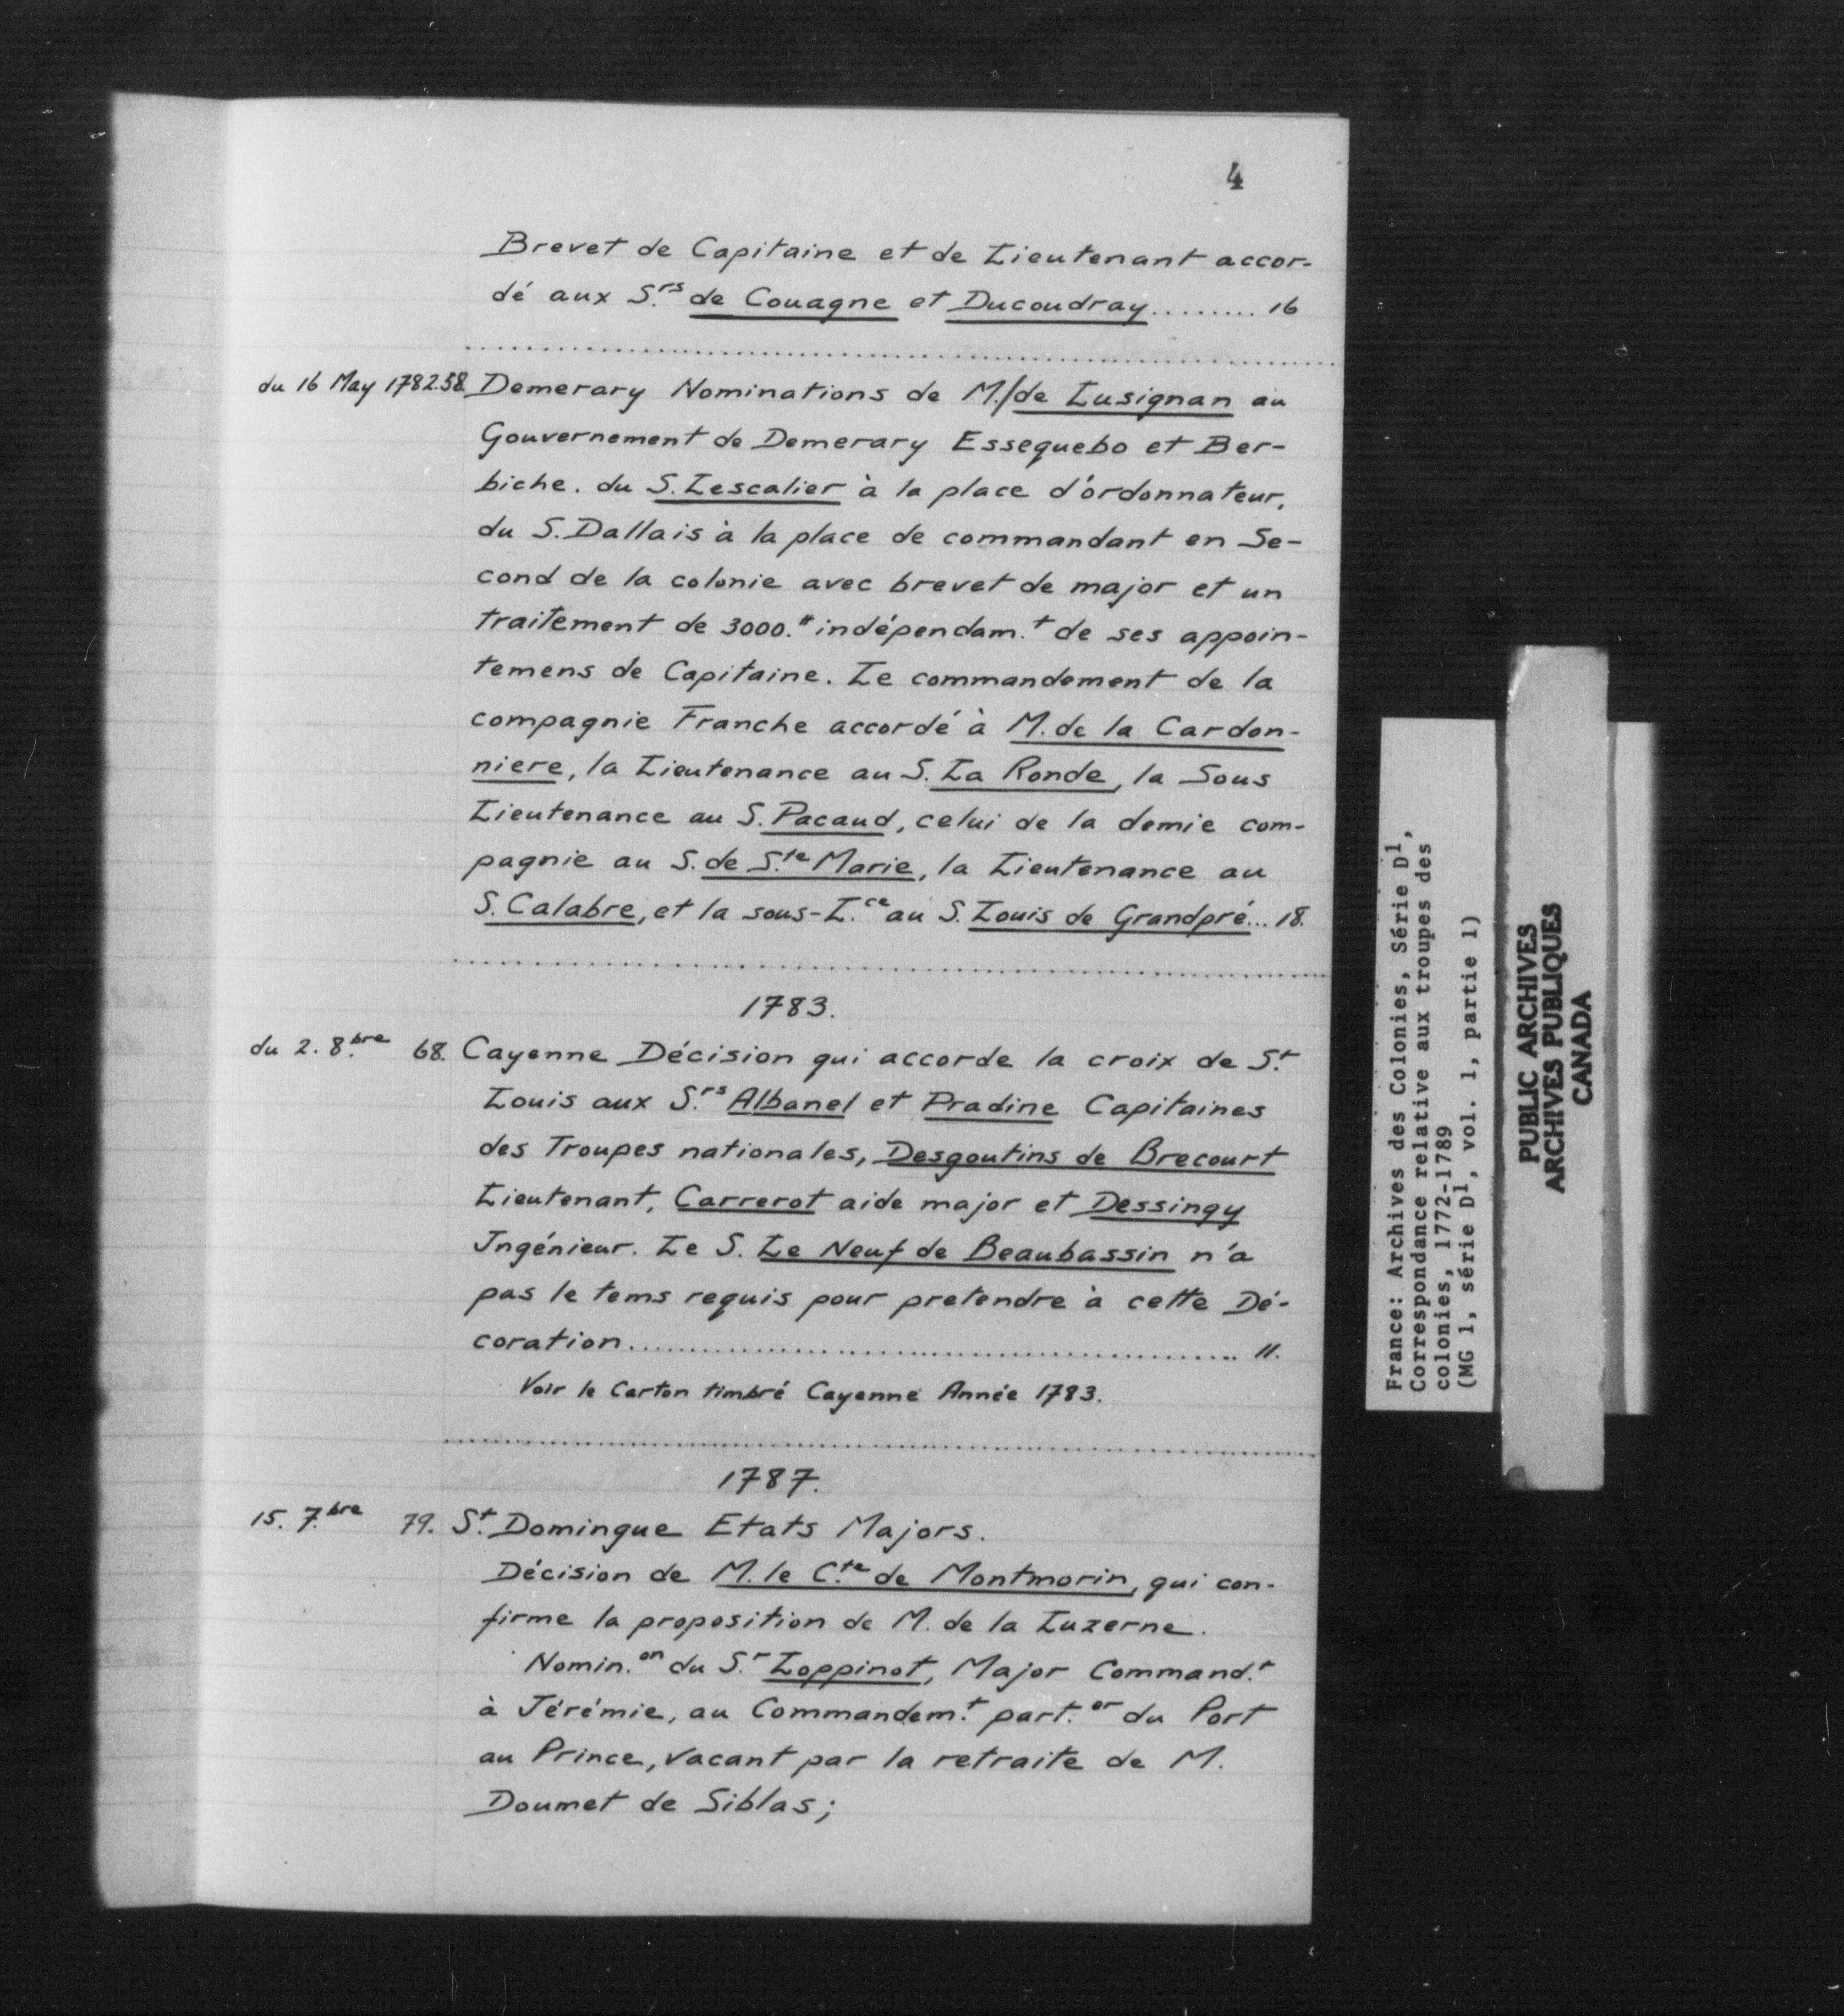 4
Brevet de Capitaine et de Lieutenant accor-
dé aux S.rs de Couagne et Ducoudray......... 16
du 16 May 1782. 58. Demerary Nominations de M./de Lusignan au
Gouvernement de Demerary Essequebo et Ber-
biche. du S. Lescalier à la place d'ordonnateur,
du S. Dallais à la place de commandant en Se-
cond de la colonie avec brevet de major et un
traitement de 3000.# indépendam.t de ses appoin-
temens de Capitaine. Le commandement de la
compagnie Franche accordé à M. de la Cardon-
niere, la Lieutenance au S. La Ronde, la Sous
Lieutenance au S. Pacaud, celui de la demie com-
pagnie au S. de S.te Marie, la Lieutenance au
S. Calabre, et la sous-L.ce au S. Louis de Grandpré... 18.
1783.
du 2. 8.bre 68. Cayenne Décision qui accorde la croix de S.t
Louis aux S.rs Albanel et Pradine Capitaines
des Troupes nationales, Desgoutins de Brecourt
Lieutenant, Carrerot aide major et Dessingy
Ingénieur. Le S. Le Neuf de Beaubassin n'a
pas le tems requis pour pretendre à cette Dé-
coration................................................ 11.
Voir le Carton timbré Cayenne Année 1783.
1787.
15. 7.bre 79. S.t Domingue Etats Majors.
Décision de M. le C.te de Montmorin, qui con-
firme la proposition de M. de la Luzerne.
Nomin.on du S.r Loppinot, Major Command.t
à Jérémie, au Commandem.t part.er du Port
au Prince, vacant par la retraite de M.
Doumet de Siblas;
France: Archives des Colonies, Série D1,
Correspondance relative aux troupes des
colonies, 1772-1789
(MG 1, série D1, vol. 1, partie 1)
PUBLIC ARCHIVES
ARCHIVES PUBLIQUES
CANADA